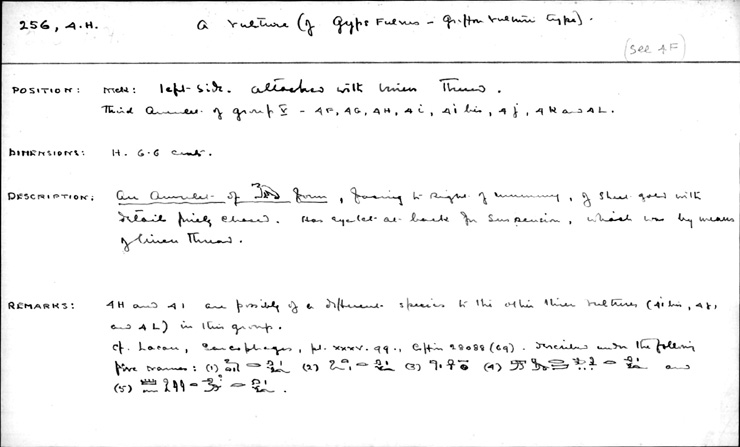 256, 4.H. A vulture (of Gyps Fulvus - Griffon vulture type).
(See 4F)
POSITION: Neck: left-side. attached with linen thread.
Third amulet of group V - 4F, 4G, 4H, 4i, 4i bis, 4j, 4K and 4L.
DIMENSIONS: H. 6.6 cents.
DESCRIPTION: An amulet of form, facing to right of mummy, of sheet gold with
detail finely chased. Has eyelet at back for suspension, which was by means
of linen thread.
REMARKS: 4H and 4I are possibly of a different species to the other three vultures (4i bis, 4j,
and 4L) in this group.
cf. Lacau, Sarcophages, pl. XXXV. 99., Coffin 28088 (69). Described under the following
five names: (1) (2) (3) (4) and
(5)